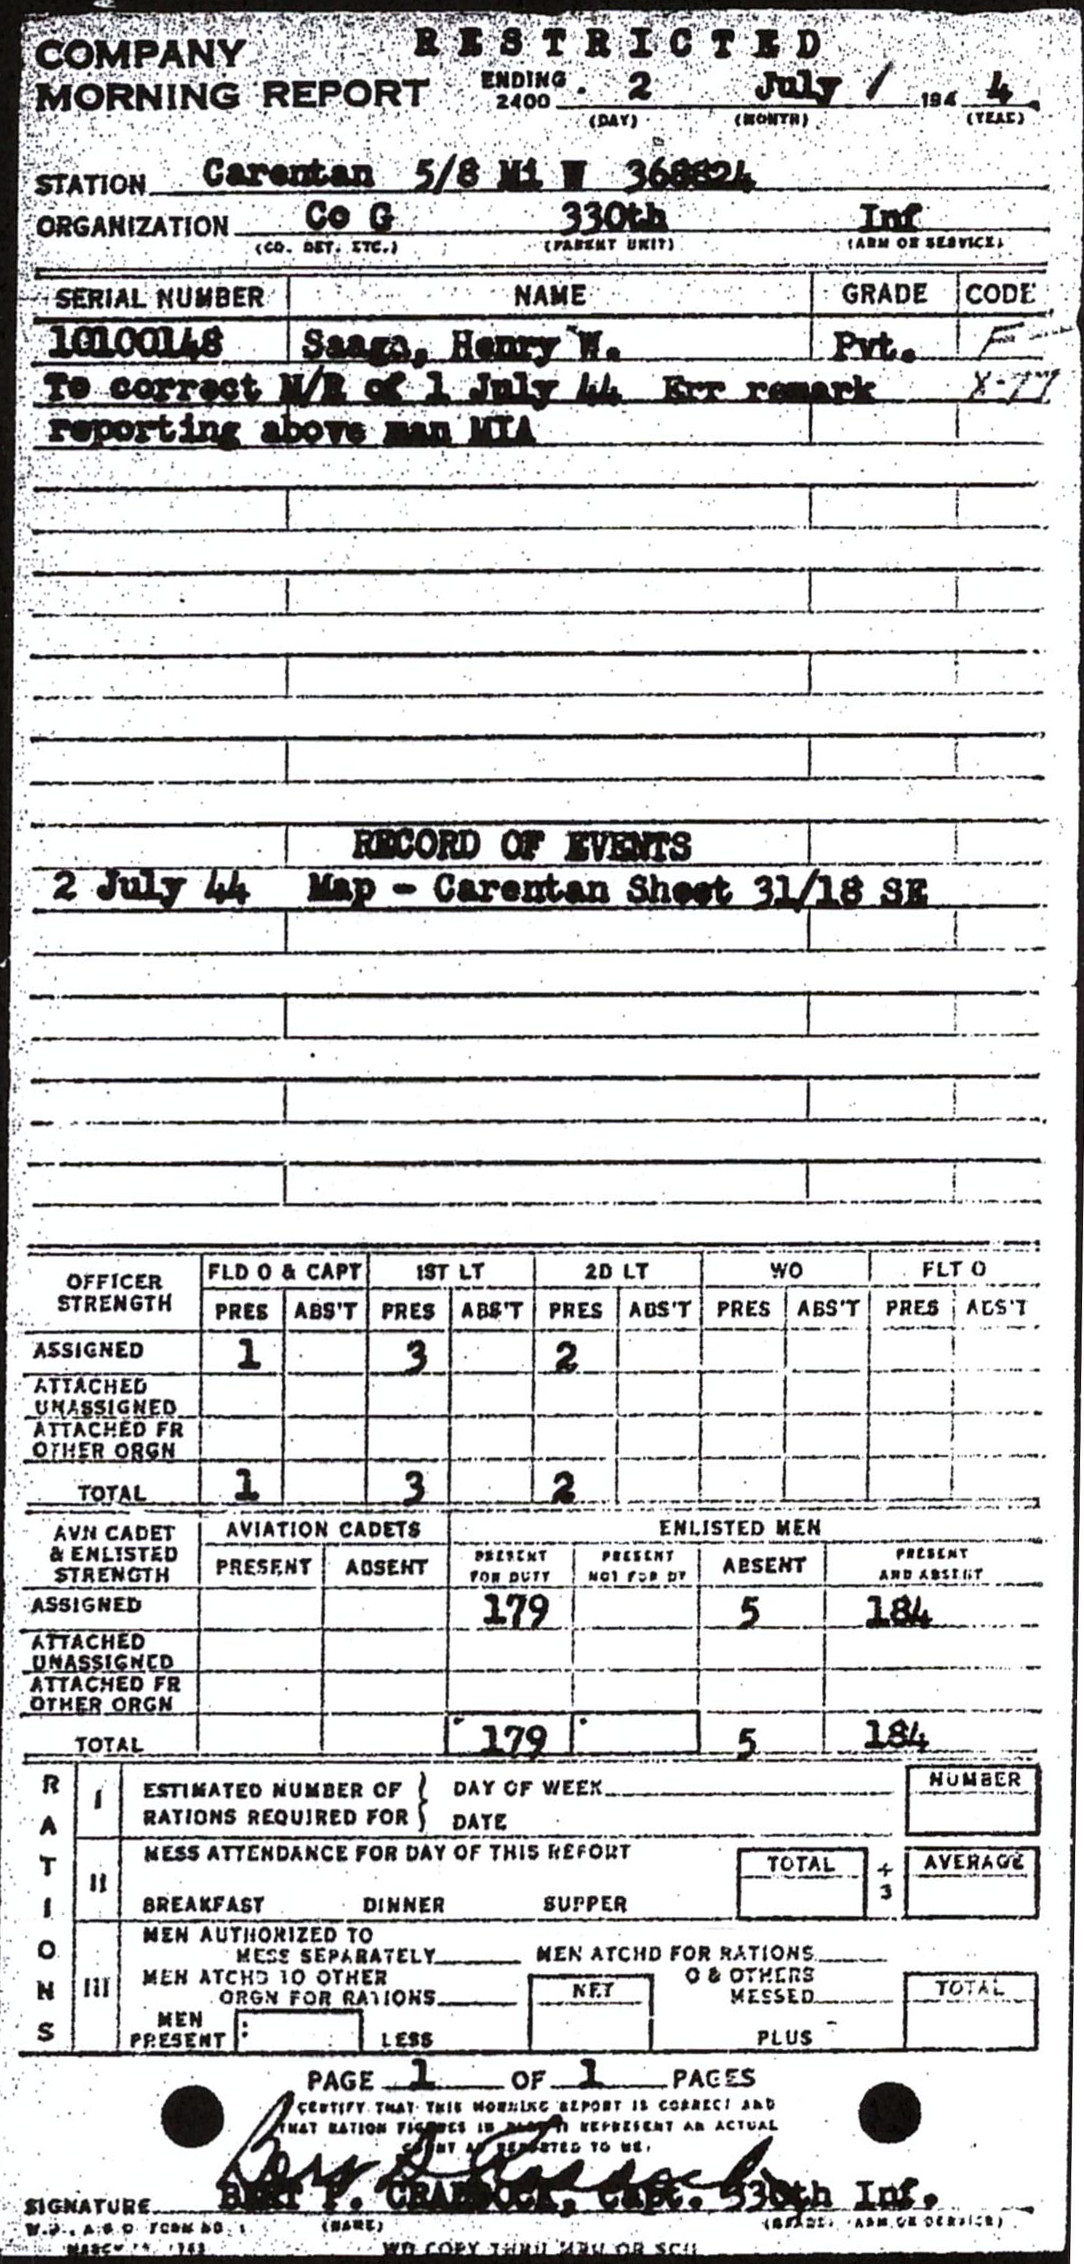 RESTRICTED
COMPANY
MORNING REPORT ENDING 2400 2 July 194 4
(DAY) (MONTH) (YEAR)
STATION Carentan 5/8 Mi W 368824
ORGANIZATION Co G 330th Inf
(CO. DET. ETC.) (PARENT UNIT) (ARM OR SERVICE)
SERIAL NUMBER NAME GRADE CODE
10100148 Henry W. Pvt. F
To correct M/R of 1 July 44 Err remark X-77
reporting above man MIA
RECORD OF EVENTS
2 July 44 Map - Carentan Sheet 31/18 SE
OFFICER STRENGTH FLD O & CAPT 1ST LT 2D LT WO FLT O
PRES ABS'T PRES ABS'T PRES ABS'T PRES ABS'T PRES ABS'T
ASSIGNED 1 3 2
ATTACHED
UNASSIGNED
ATTACHED FR
OTHER ORGN
TOTAL 1 3 2
AVN CADET & ENLISTED STRENGTH AVIATION CADETS ENLISTED MEN
PRESENT ABSENT PRESENT FOR DUTY PRESENT NOT FOR DY ABSENT PRESENT AND ABSENT
ASSIGNED 179 5 184
ATTACHED
UNASSIGNED
ATTACHED FR
OTHER ORGN
TOTAL 179 5 184
RATIONS
I ESTIMATED NUMBER OF DAY OF WEEK NUMBER
RATIONS REQUIRED FOR DATE
II MESS ATTENDANCE FOR DAY OF THIS REPORT TOTAL ÷ 3 AVERAGE
BREAKFAST DINNER SUPPER
III MEN AUTHORIZED TO
MESS SEPARATELY MEN ATCHD FOR RATIONS
MEN ATCHD TO OTHER O & OTHERS
ORGN FOR RATIONS NET MESSED TOTAL
MEN
PRESENT LESS PLUS
PAGE 1 OF 1 PAGES
CERTIFY THAT THIS MORNING REPORT IS CORRECT AND
THAT RATION FIGURES IN REPRESENT AN ACTUAL
COUNT AS REPORTED TO ME.
SIGNATURE BERT P. CRADDOCK, Capt. 330th Inf.
W.D., A.G.O. FORM NO. 1 (NAME) (GRADE) (ARM OR SERVICE)
MARCH
WD COPY THRU MRU OR SCU